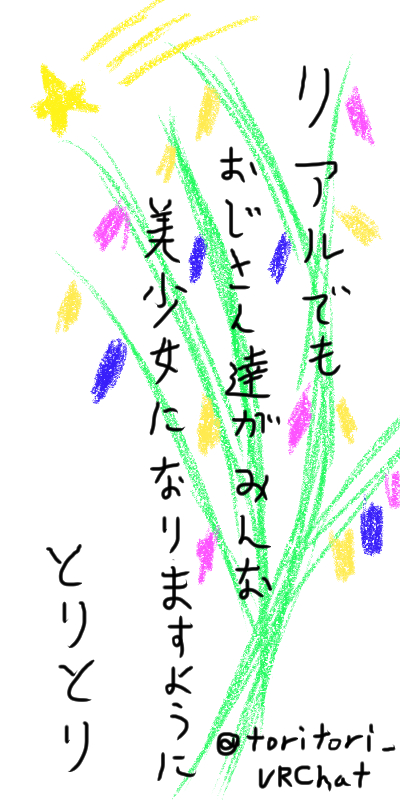 リアルでも
おじさん達がみんな
美少女になりますように
とりとり
@toritori_
VRChat